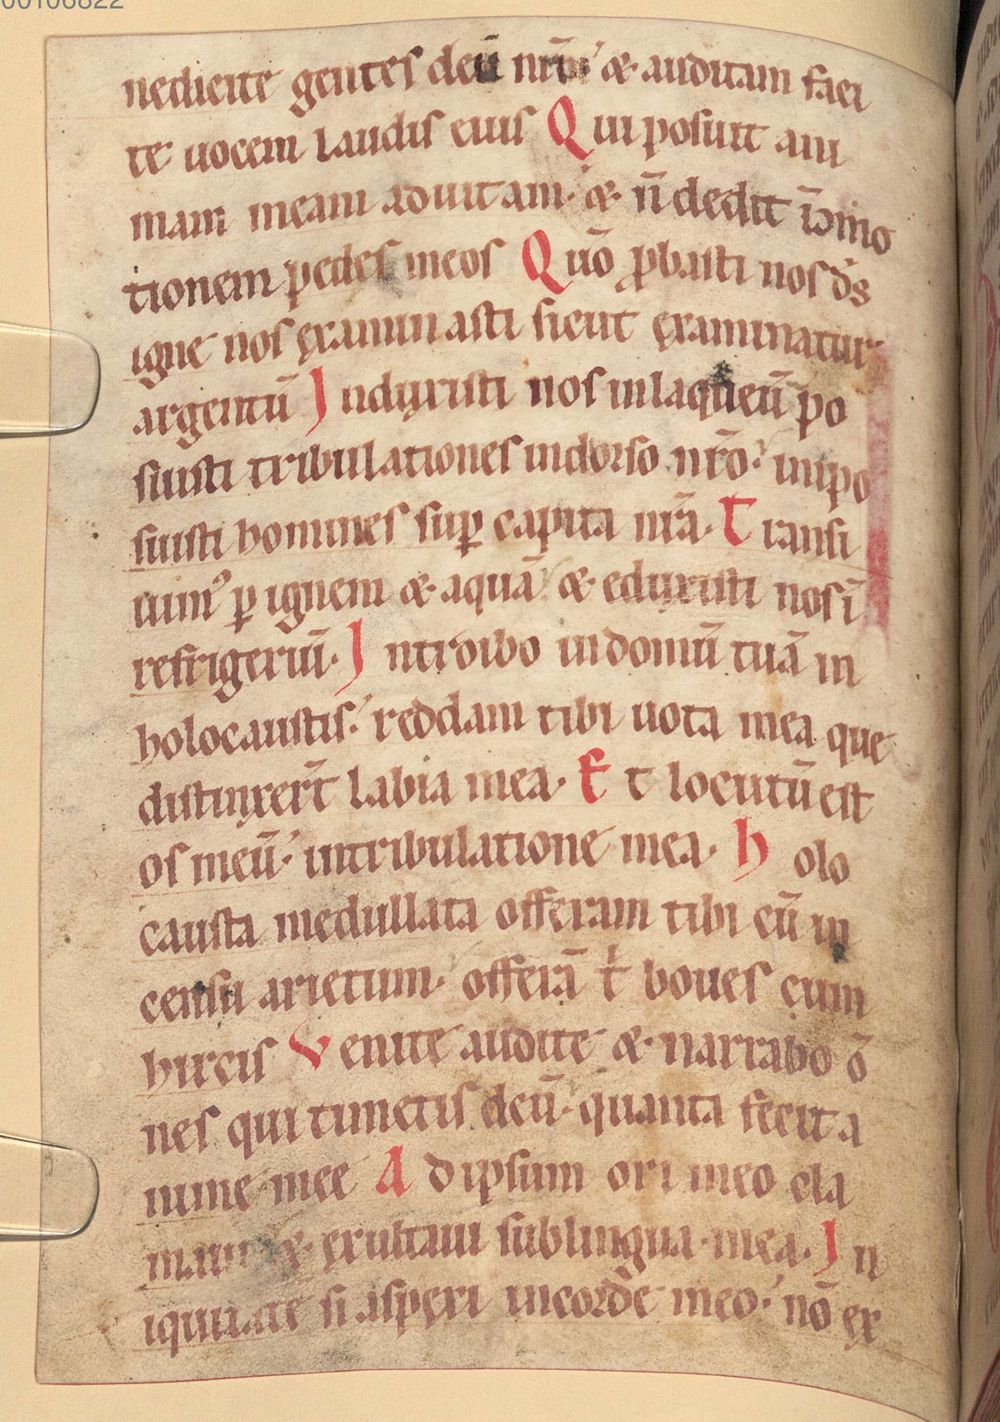 00106822
nedicite gentes deū nr̄m &̇ auditam faci
te uocem laudis eius Qui posuit ani
mam meam aduitam· &̇ n̄ dedit ī ɔmo
tionem pedes meos Quō ꝓbasti nos d̄s
igne nos examinasti sicut examinatur
argentū Induxisti nos inlaqueū po
suisti tribulationes indorso nr̄o· inpo
suisti homines suꝑ capita nr̄a· Transi
uimꝰ ꝑ ignem &̇ aquā &̇ eduxisti nos ī
refrigeriū· Introibo indomū tuā in
holocaustis· reddam tibi uota mea que
distinxer̄t labia mea· Et locutū est
os meū· intribulatione mea· holo
causta medullata offeram tibi cū in
censu arietum· offerā t̄ boues cum
hircis Venite audite &̇ narrabo ō
nes qui timetis deū· quanta fecit a
nime mee Ad ipsum ori meo cla
maui &̇ exultaui sublingua mea· In
iquitate si aspexi incorde meo· nō ex